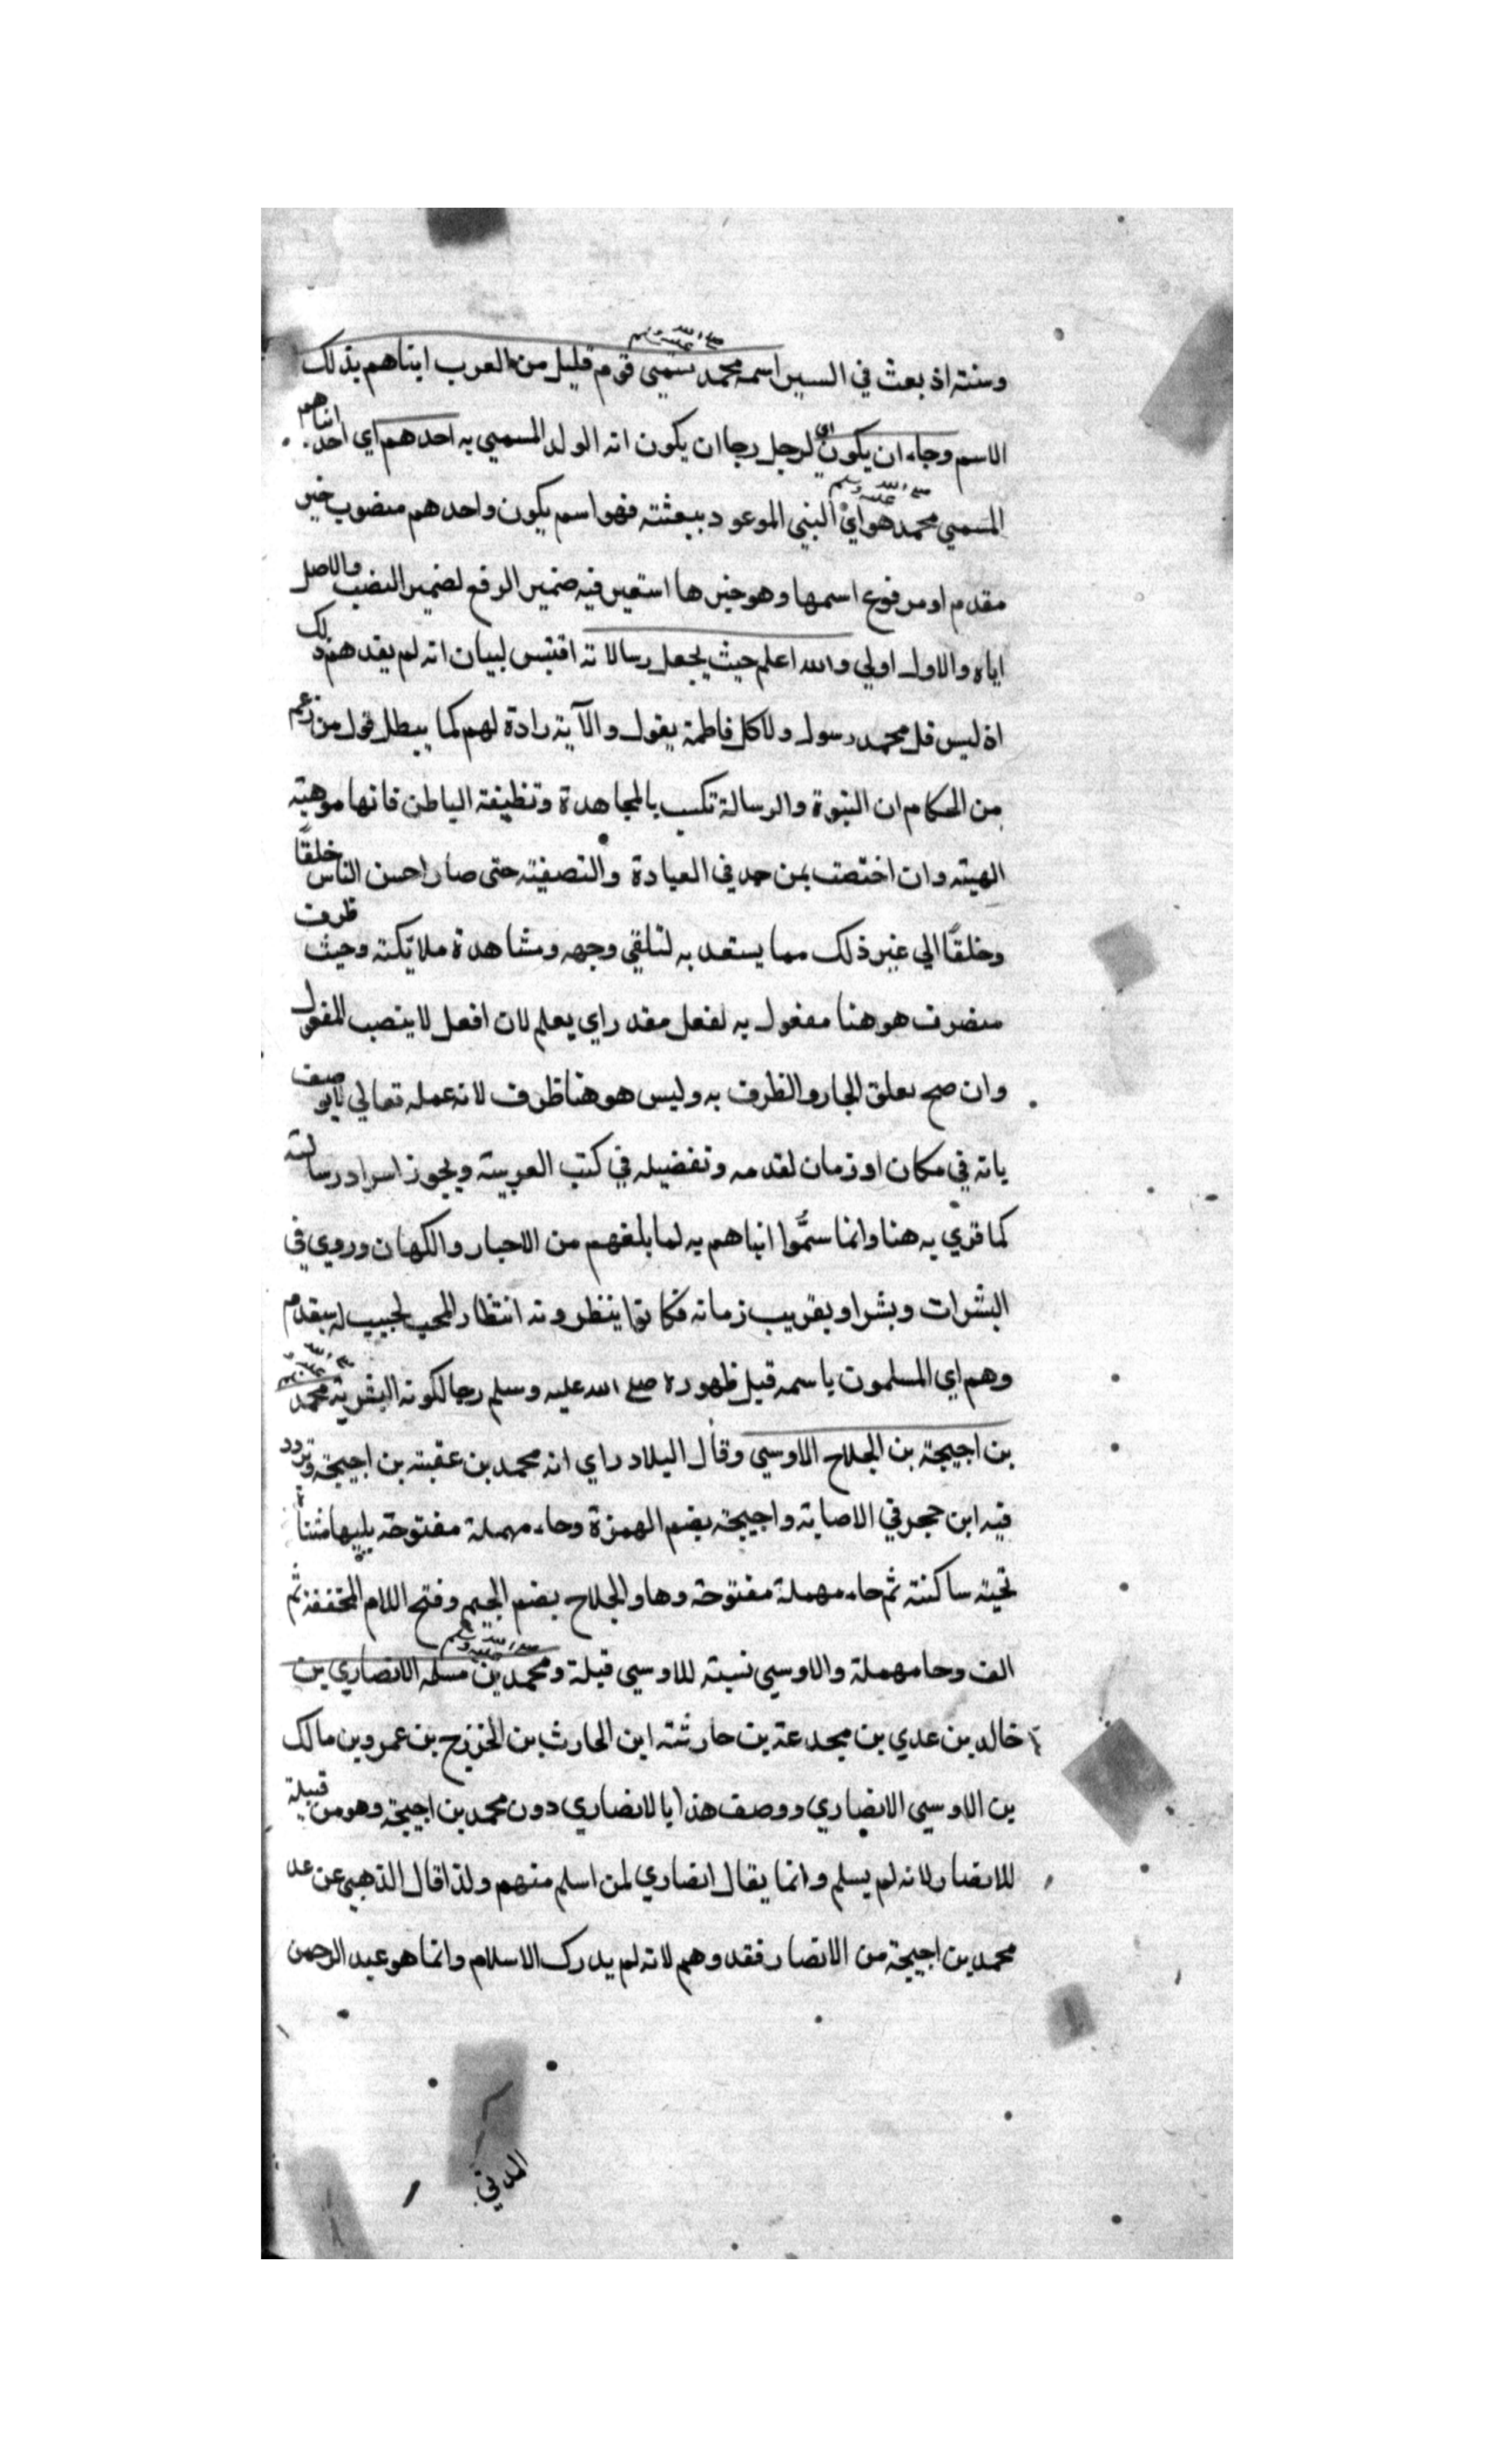 وسنته اذ بعث في السير اسمه محمد صلى الله عليه وسلم تسمي قوم قليل من العرب ابناهم بذلك
الاسم وجاء ان يكون اي لرجل رجا ان يكون انه الولد المسمي به احدهم اي احد ابناهم
المسمي محمد صلى الله عليه وسلم هو اي النبي الموعود ببعثته فهو اسم يكون واحدهم منصوب خبر
مقدم او مرفوع اسمها وهو خبرها استعير فيه ضمير الرفع لضمير النصب والاصل
اياه والاول اولي والله اعلم حيث يجعل رسالاته اقتبس لبيان انه لم يفدهم ذلك
اذ ليس قل محمد رسول ولا كل فاطمة بقول والآية رادة لهم كما يبطل قول من زعم
من الحكام ان النبوة والرسالة تكسب بالمجاهدة وتنظيفة الباطن فانها موهبته
الهيته وان اختصت بمن حد في العبادة والتصفيته حتى صار احسن الناس خلقًا
وخلقًا الي غير ذلك مما يستعد به لتلقي وجهه ومشاهدة ملائكته وحيث ظرف
متصرف هو هنا مفعول به لفعل مقدر اي يعلم لان افعل لا ينصب المفعول
وان صح تعلق الجار والظرف به وليس هو هنا ظرف لان عمله تعالي لا يوصف
بانه في مكان او زمان لقدمه وتفضيله في كتب العربيته ويجوز اسراد رسالته
كما قري به هنا وانما سمُّوا ابناهم به لما بلغهم من الاحبار والكهان وروي في
البشرات وبشروا بقريب زمانه فكانوا ينظرونه انتظار المحب لحبيب له يقدم
وهم اي المسلمون باسمه قبل ظهوره صلى الله عليه وسلم رجا لكونه البشرية محمد صلى الله عليه وسلم
بن اجيحة بن الجلاح الاوسي وقال البلادراي انه محمد بن عقبته بن اجيحة وتردد
فيه ابن حجر في الاصابة واجيحة بضم الهمزة وحاء مهملة مفتوحة يليها مثناة
تحيته ساكنته ثم حاء مهملة مفتوحة وها والجلاح بضم الجيم وفتح اللام المخففة ثم
الف وحا مهملة والاوسي نسبته للاوسي قبلة ومحمد صلى الله عليه وسلم بن مسلمه الانصاري بن
خالد بن عدي بن مجدعة بن حارثته ابن الحارث بن الخزرج بن عمرو بن مالك
بن الاوسي الانصاري ووصف هذا بالانصاري دون محمد بن اجيحة وهو من قبيلة
للانصار لانه لم يسلم وانما يقال انصاري لمن اسلم منهم ولذا قال الذهبي عن عد
محمد بن اجيحة من الانصار فقد وهم لانه لم يدرك الاسلام وانما هو عبد الرحمن
المدني